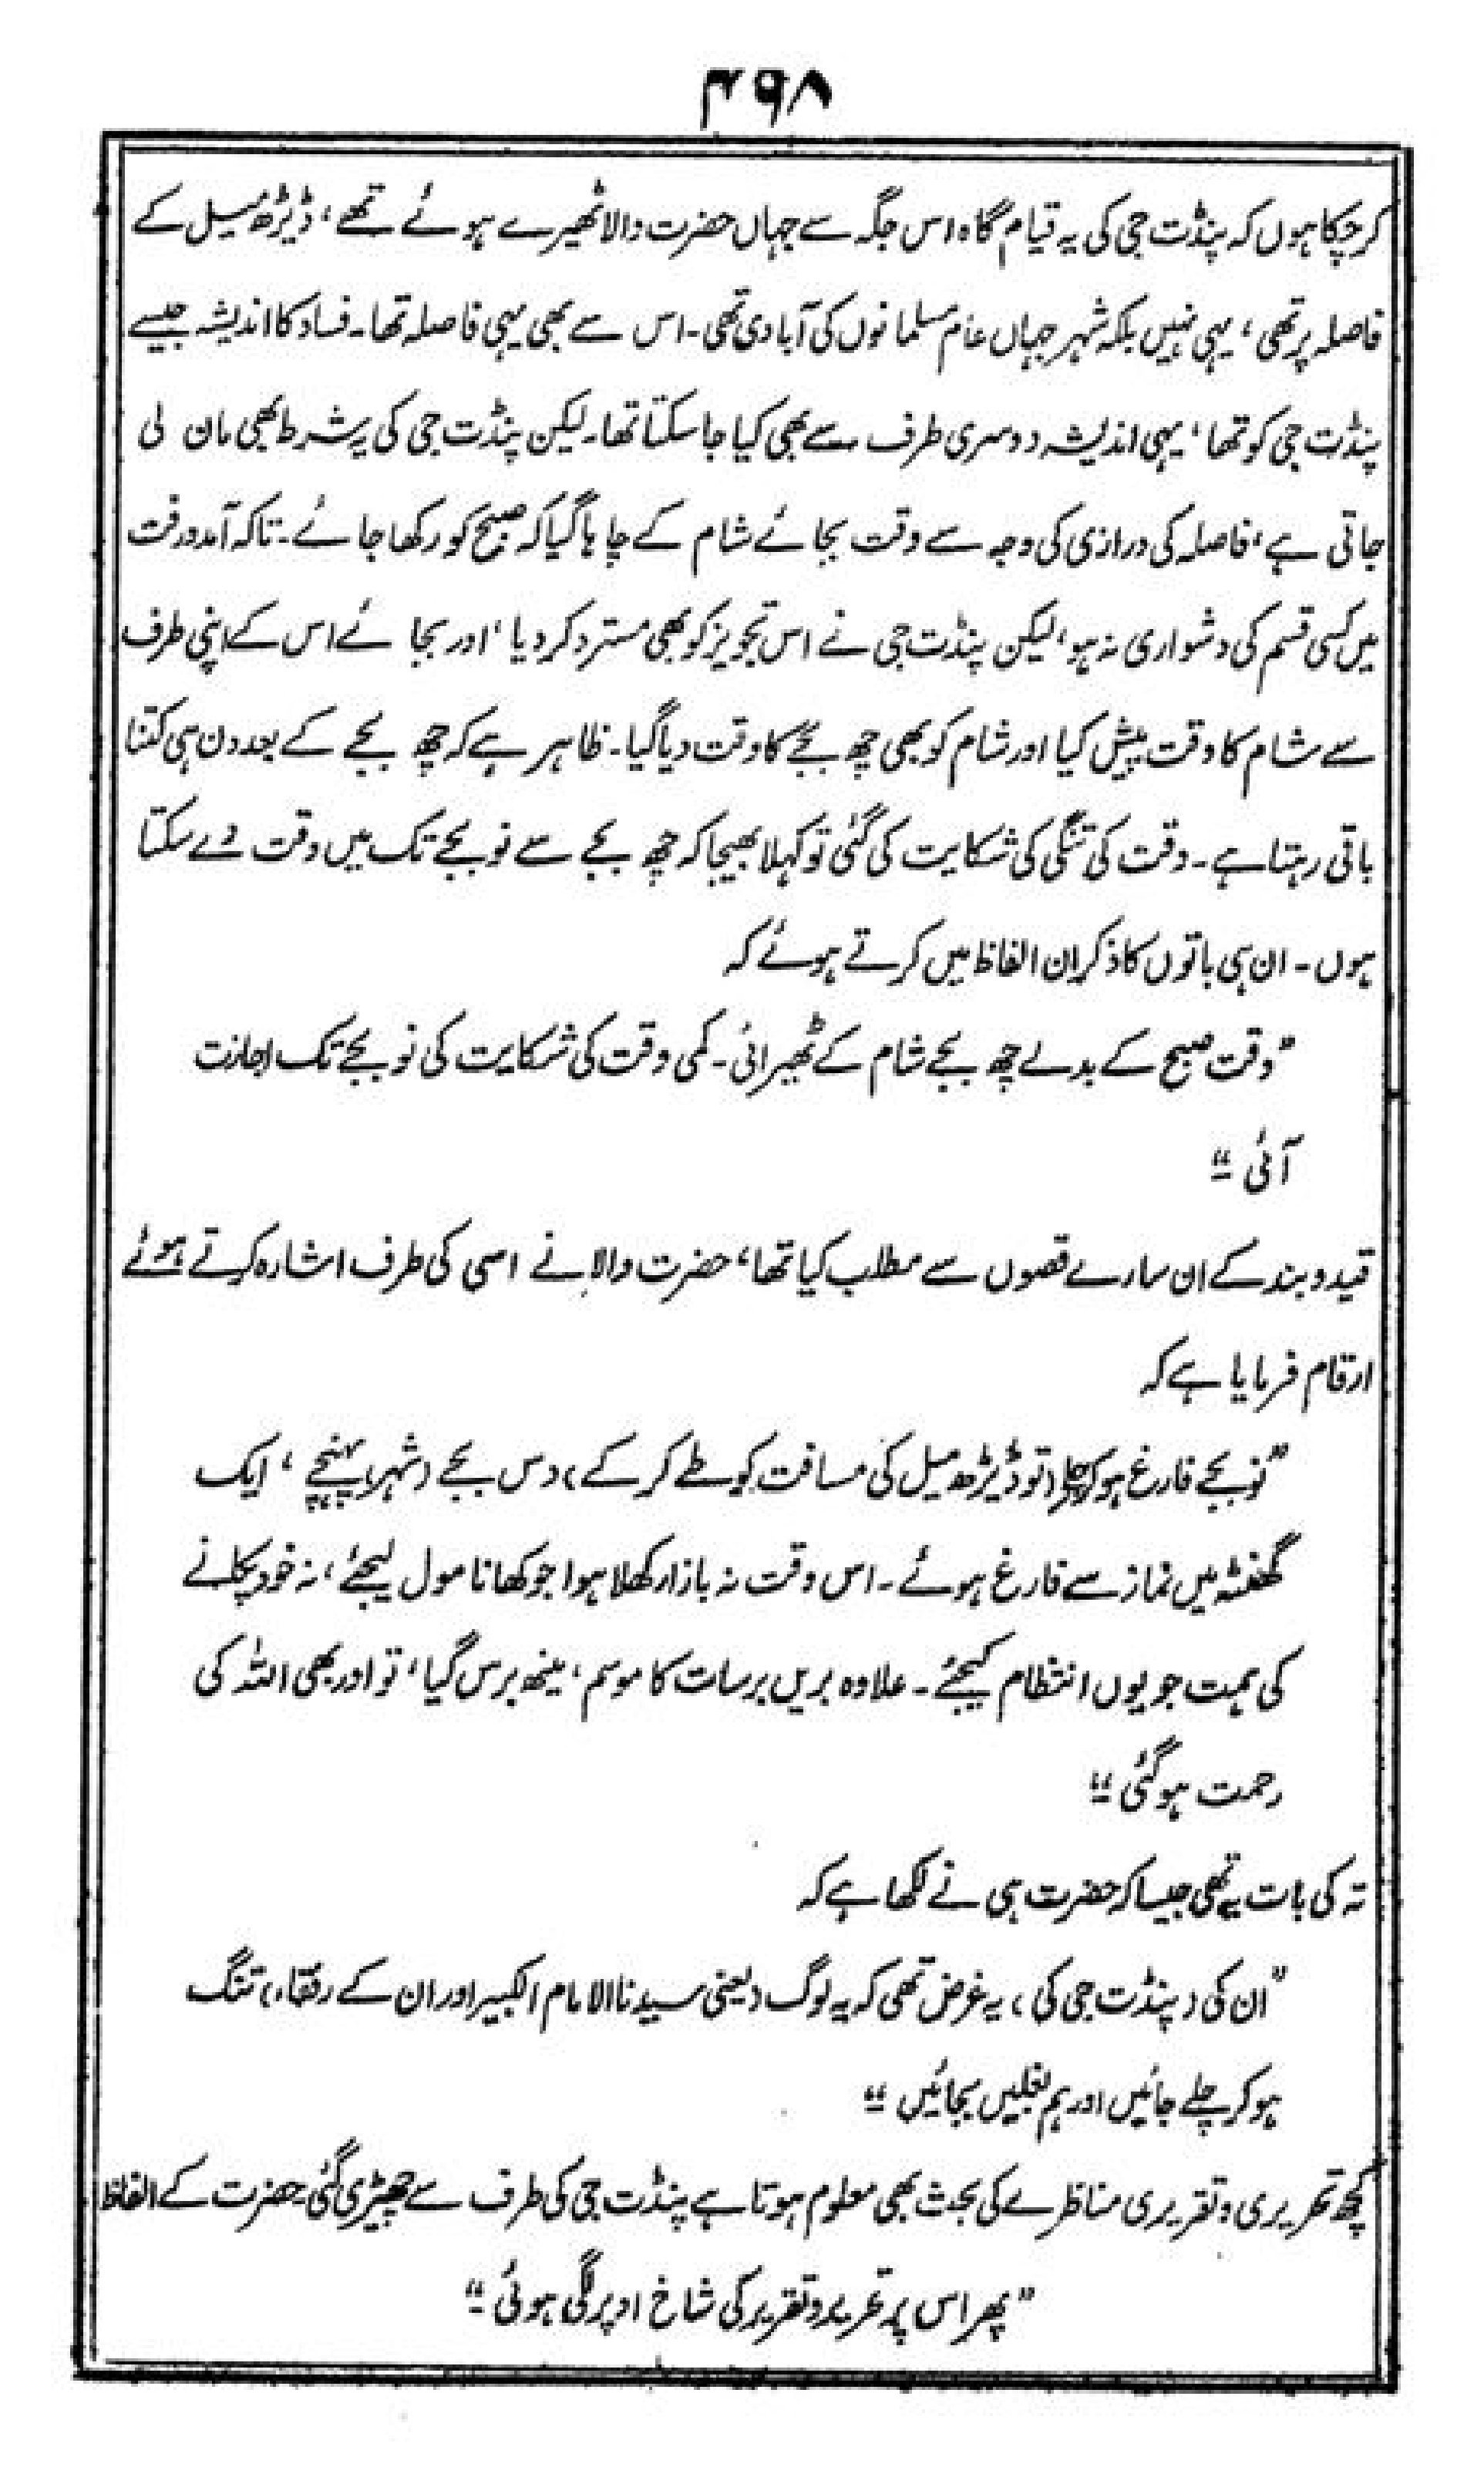 ۴۹۸
کرچکا ہوں کہ پنڈت جی کی یہ قیام گاہ اس جگہ سے جہاں حضرت والا ٹھیرے ہوئے تھے، ڈیڑھ میل کے
فاصلہ پر تھی، یہی نہیں بلکہ شہر جہاں عام مسلمانوں کی آبادی تھی۔ اس سے بھی یہی فاصلہ تھا۔ فساد کا اندیشہ جیسے
پنڈت جی کو تھا، یہی اندیشہ دوسری طرف سے بھی کیا جا سکتا تھا۔ لیکن پنڈت جی کی یہ شرط بھی مان لی
جاتی ہے، فاصلہ کی درازی کی وجہ سے وقت بجائے شام کے چاہا گیا کہ صبح کو رکھا جائے۔ تاکہ آمدورفت
میں کسی قسم کی دشواری نہ ہو، لیکن پنڈت جی نے اس تجویز کو بھی مسترد کر دیا، اور بجائے اس کے اپنی طرف
سے شام کا وقت پیش کیا اور شام کو بھی چھ بجے کا وقت دیا گیا۔ ظاہر ہے کہ چھ بجے کے بعد دن ہی کتنا
باقی رہتا ہے۔ وقت کی تنگی کی شکایت کی گئی تو کہلا بھیجا کہ چھ بجے سے نو بجے تک میں وقت دے سکتا
ہوں۔ ان ہی باتوں کا ذکر ان الفاظ میں کرتے ہوئے کہ
”وقت صبح کے بدلے چھ بجے شام کے ٹھیرائی۔ کمی وقت کی شکایت کی نو بجے تک اجازت
آئی۔“
قید و بند کے ان سارے قصوں سے مطلب کیا تھا، حضرت والا نے اسی کی طرف اشارہ کرتے ہوئے
ارقام فرمایا ہے کہ
”نو بجے فارغ ہو کر چلا (تو ڈیڑھ میل کی مسافت کو طے کر کے) دس بجے (شہر) پہنچے، ایک
گھنٹہ میں نماز سے فارغ ہوئے۔ اس وقت نہ بازار کھلا ہوا جو کھانا مول لیجئے، نہ خود پکانے
کی ہمت جو یوں انتظام کیجئے۔ علاوہ بریں برسات کا موسم، مینھ برس گیا، تو اور بھی اللہ کی
رحمت ہو گئی۔“
تہ کی بات یہ تھی جیسا کہ حضرت ہی نے لکھا ہے کہ
”ان کی (پنڈت جی کی) یہ غرض تھی کہ یہ لوگ (یعنی سیدنا الامام الکبیر اور ان کے رفقاء) تنگ
ہو کر چلے جائیں اور ہم بغلیں بجائیں۔“
کچھ تحریری و تقریری مناظرے کی بحث بھی معلوم ہوتا ہے پنڈت جی کی طرف سے چھیڑی گئی۔ حضرت کے الفاظ
”پھر اس پر تحریر و تقریر کی شاخ اوپر لگی ہوئی۔“